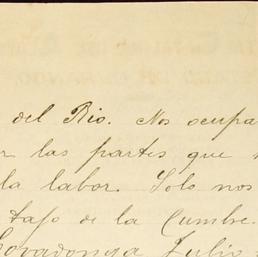 del Rio. Nos ocupa
las partes que
la labor. Solo nos
tajo de la Cumbre.
Covadonga Julio